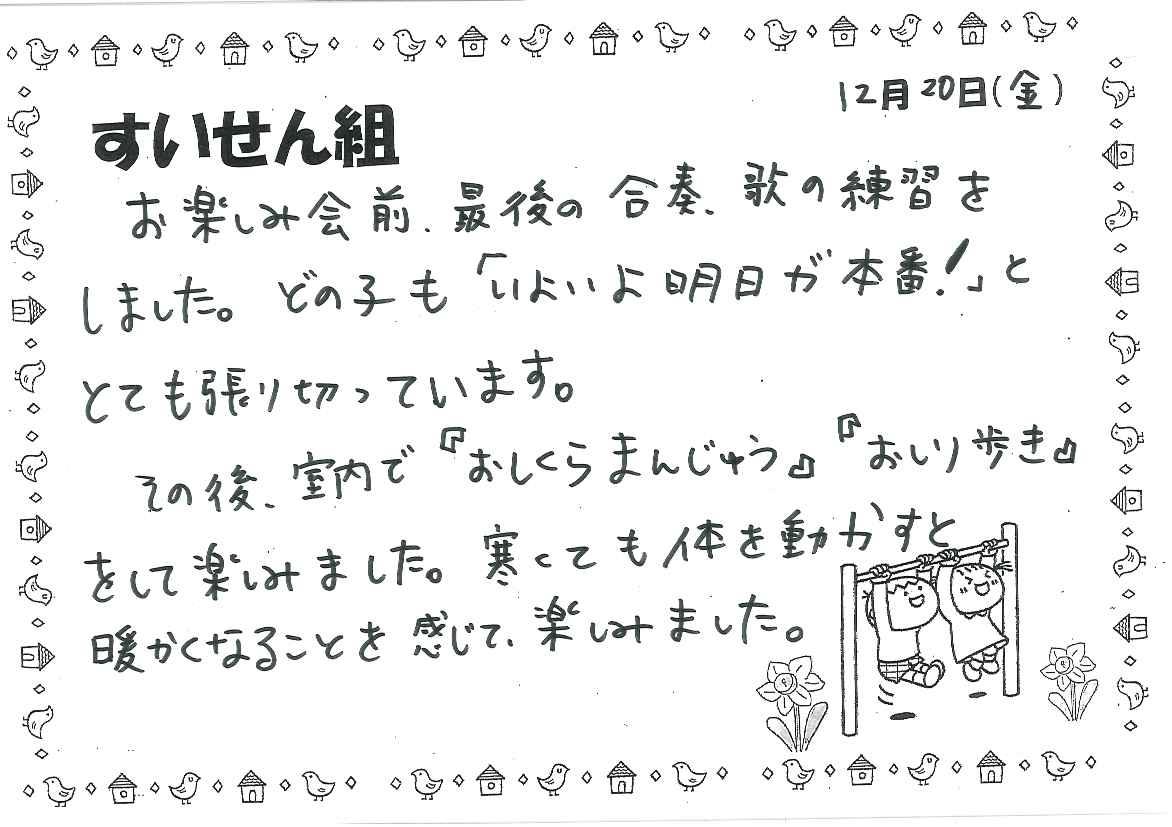 12月20日(金)
すいせん組
お楽しみ会前、最後の合奏、歌の練習を
しました。どの子も「いよいよ明日が本番!」と
とても張り切っています。
その後、室内で『おしくらまんじゅう』『おしり歩き』
をして楽しみました。寒くても体を動かすと
暖かくなることを感じて、楽しみました。